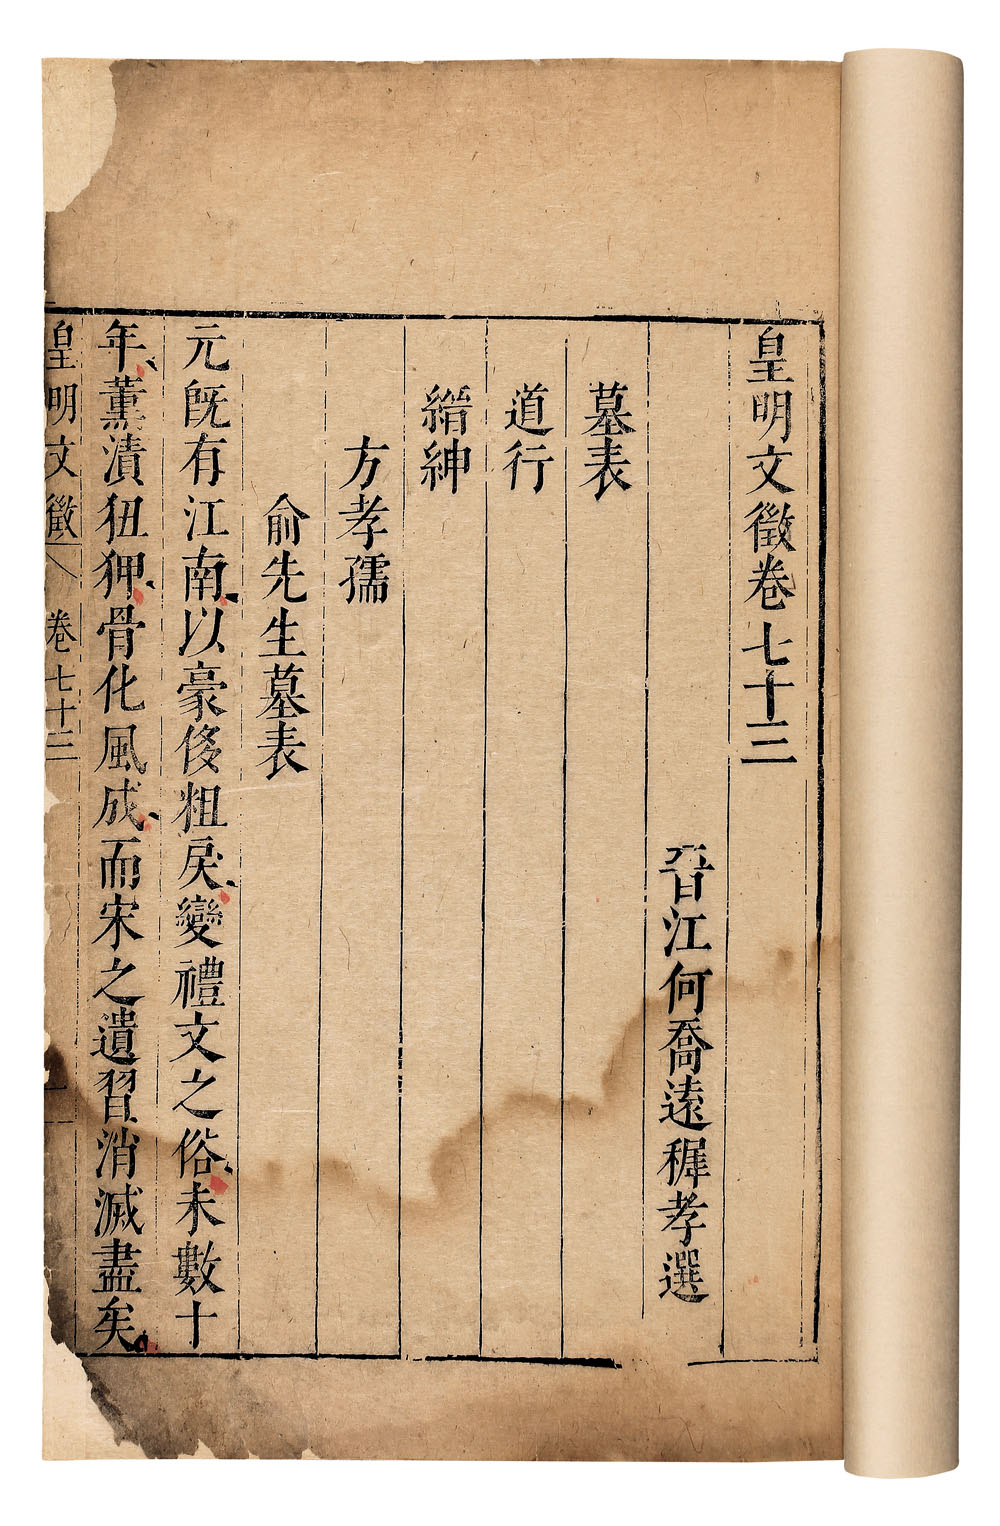 皇明文徵卷七十三
晉江何喬遠穉孝選
墓表
道行
縉紳
方孝孺
俞先生墓表
元旣有江南、以豪侈粗戾、變禮文之俗、未數十
年、薰漬狃狎、骨化風成、而宋之遺習消滅盡矣。
皇明文徵 卷七十三 一